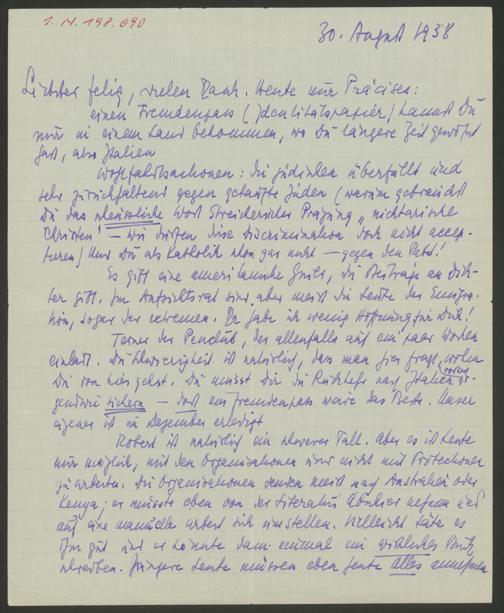 1. N. 198.090
30. August 1938
Liebster Felix, vielen Dank. Heute nur Präcises:
einen Fremdenpass (Identitätspapier) kannst Du
nur in einem Land bekommen, wo Du längere Zeit gewohnt
hast, also Italien
Wohlfahrtsactionen: die jüdischen überfüllt und
sehr zurückhaltend gegen getaufte Juden (warum gebrauchst
Du das Wort Streicherscher Prägung "nichtarische
Christen" – wir dürfen diese Discrimination doch nicht accep-
tieren) Und Du als Katholik schon gar nicht – gegen den Papst!
Es gibt eine amerikanische Guild, die Beiträge an Dich-
ter gibt. Im Aufsichtsrat sind aber meist die Leute der Emigra-
tion, sogar der extremen. Da habe ich wenig Hoffnung für Dich!
Ferner der Penclub, der allenfalls auf ein paar Wochen
einlädt. Die Schwierigkeit ist natürlich, dass man hier fragt, wohin
Du von hier gehst. Du musst Dir die Rückkehr nach Italien vorher ir-
gendwie sichern – dort ein Fremdenpass wäre das Beste. Unser
eigener ist im Dezember erledigt
Robert ist natürlich ein schwerer Fall. Aber es ist heute
nur möglich, mit den Organisationen und nicht mit Protectionen
zu arbeiten. Die Organisationen senden meist nach Australien oder
Kenya; er müsste eben von der Literatur Abschied nehmen und
auf eine manuelle Arbeit sich einstellen. Vielleicht täte es
ihm gut und er könnte dann einmal ein wirkliches Buch
schreiben. Jüngere Leute müssen eben heute alles annehmen